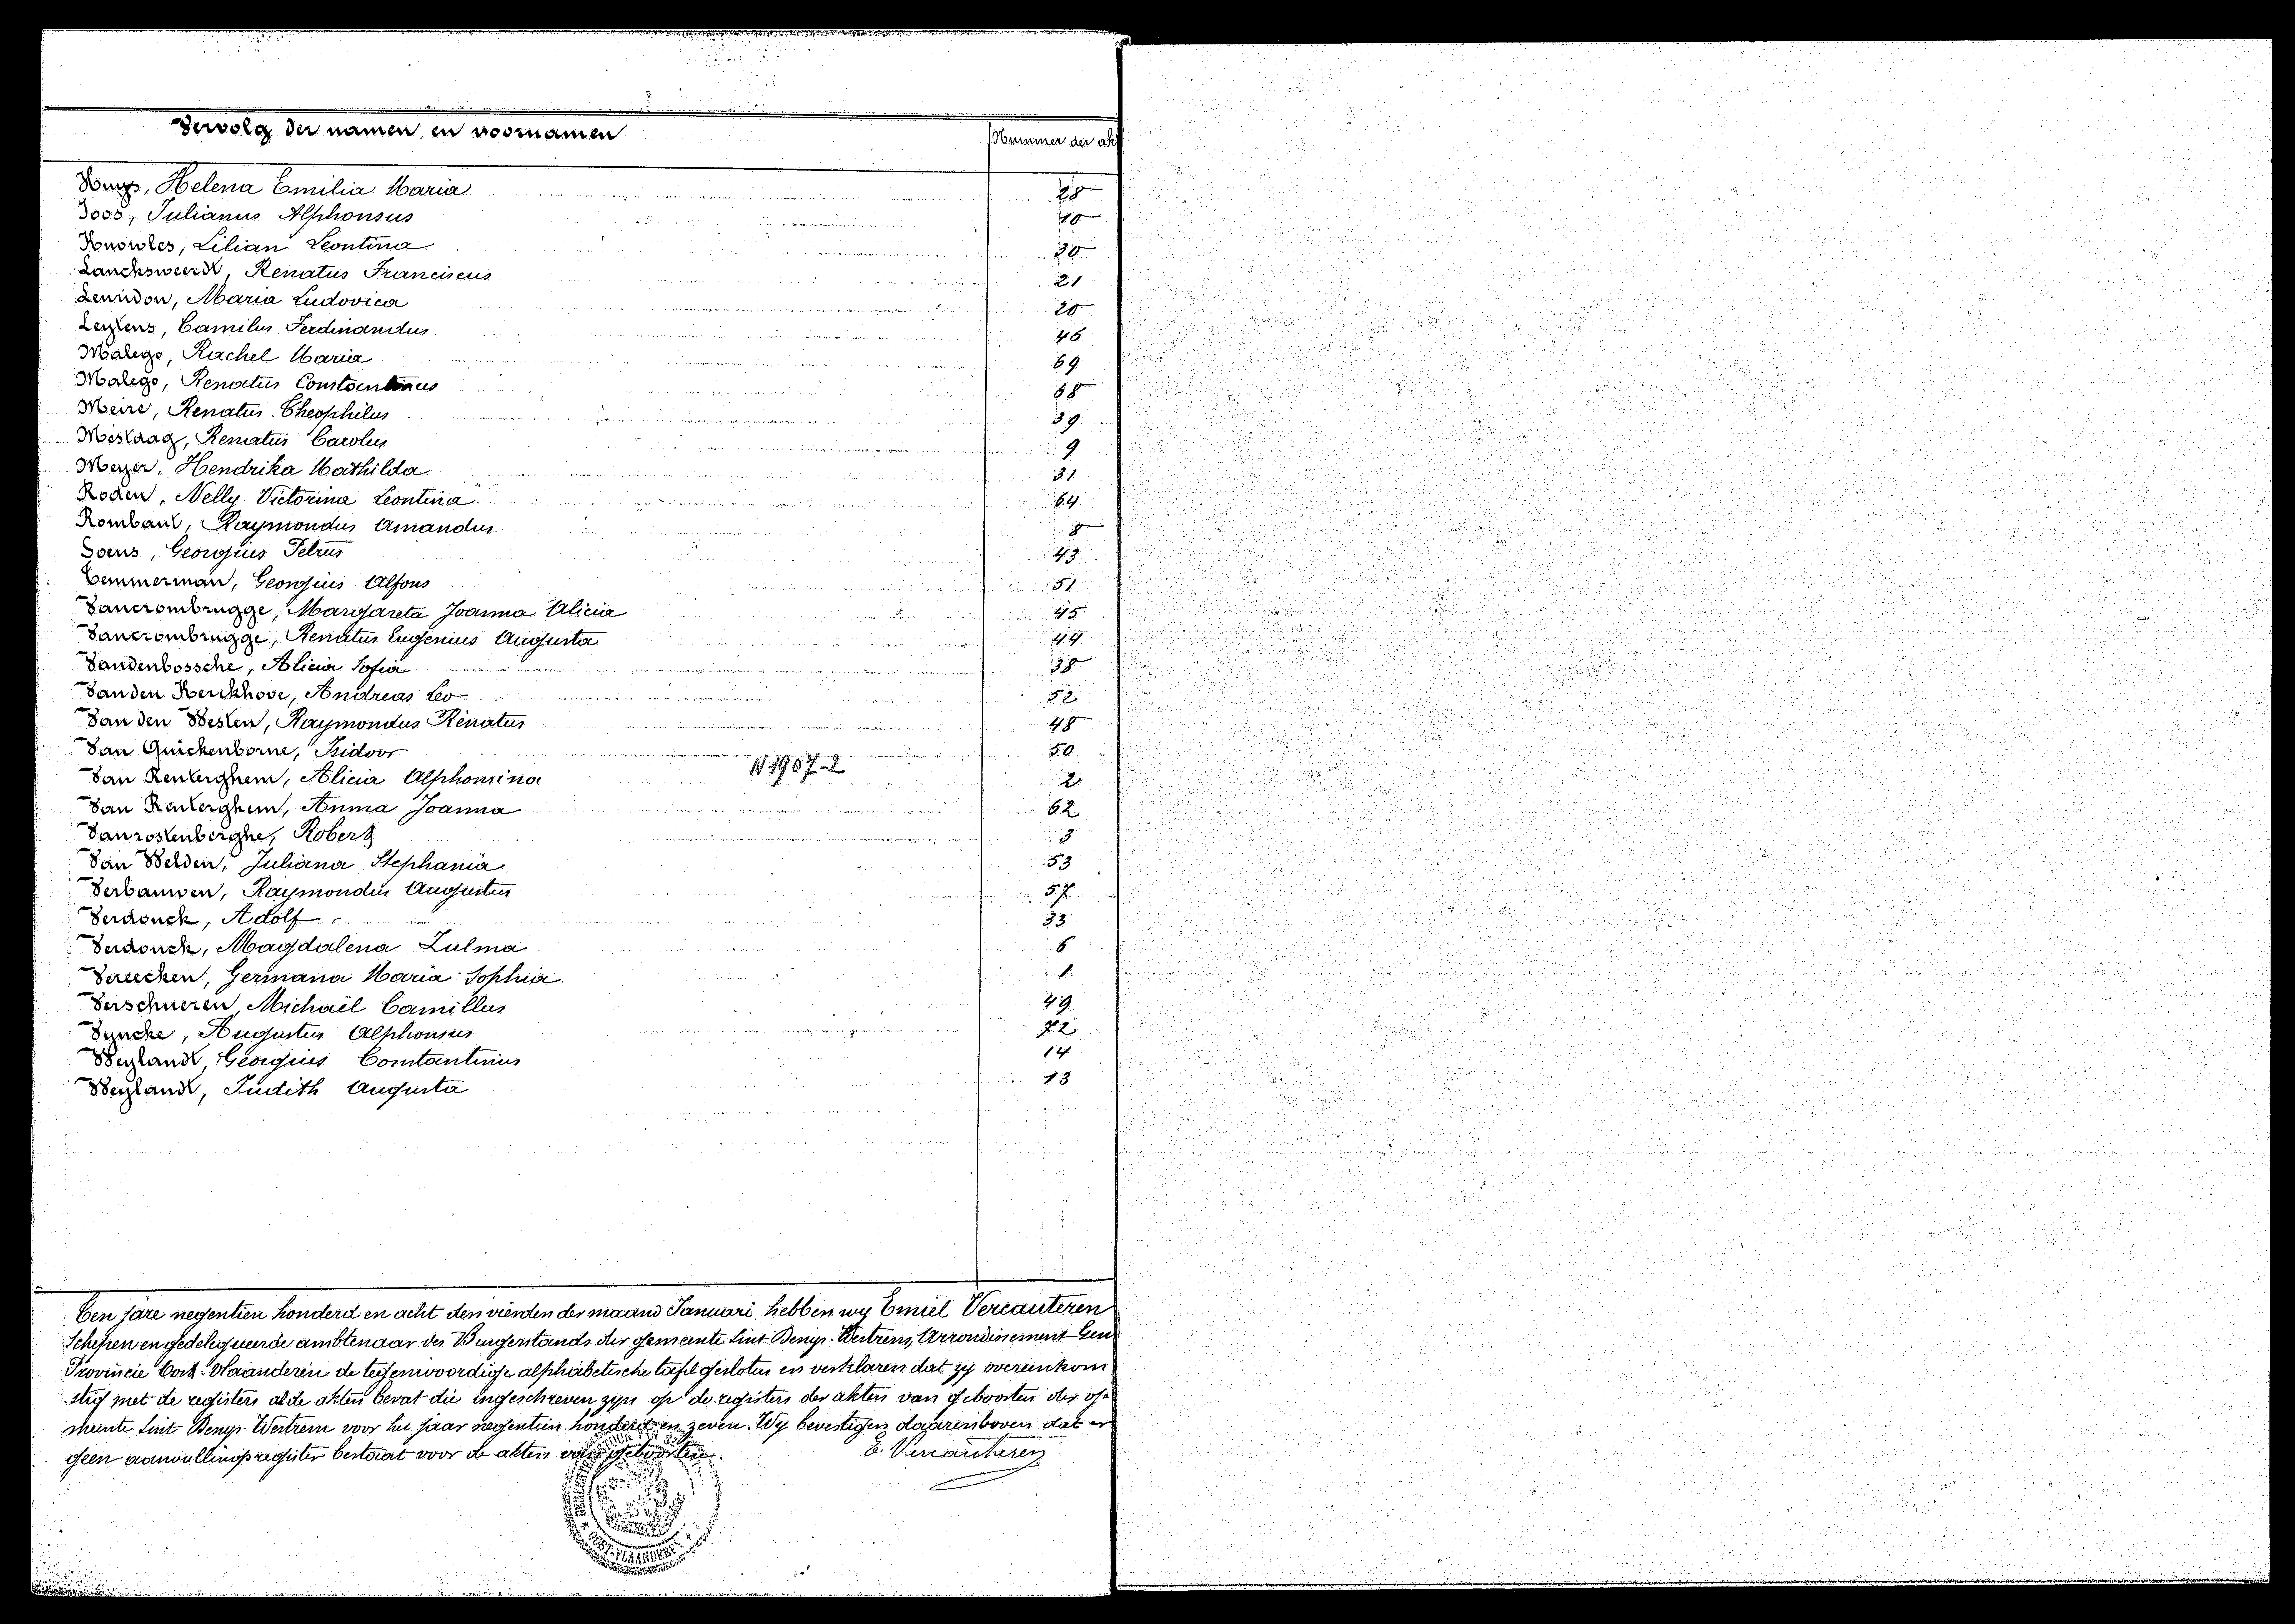 Vervolg der namen en voornamen
Nummer der ak
Huys, Helena Emilia Maria 28
Joos, Julianus Alphonsus 10
Knowles, Lilian Leontina 30
Lancksweerdt, Renatus Franciscus 21
Leuridon, Maria Ludovica 20
Leytens, Camilus Ferdinandus 46
Malego, Rachel Maria 69
Malego, Renatus Constantinus 68
Meire, Renatus Theophilus 39
Mestdag, Renatus Carolus 9
Meyer, Hendrika Mathilda 31
Roden, Nelly Victorina Leontina 64
Rombaut, Raymondus Amandus 8
Soens, Georgius Petrus 43
Temmerman, Georgius Alfons 51
Vancrombrugge, Margareta Joanna Alicia 45
Vancrombrugge, Renatus Eugenius Augusta 44
Vandenbossche, Alicia Sofia 38
Van den Kerckhove, Andreas Leo 52
Van den Westen, Raymondus Renatus 48
Van Quickenborne, Isidoor 50
Van Renterghem, Alicia Alphonsina N 1907-2 2
Van Renterghem, Anna Joanna 62
Vanrostenberghe, Robert 3
Van Welden, Juliana Stephania 53
Verbauwen, Raymondus Augustus 57
Verdonck, Adolf 33
Verdonck, Magdalena Zulma 6
Vereecken, Germana Maria Sophia 1
Verschueren, Michaël Camillus 49
Vyncke, Augustus Alphonsus 72
Weylandt, Georgius Constantinus 14
Weylandt, Judith Augusta 13
Ten jare negentien honderd en acht den vierden der maand Januari hebben wy Emiel Vercauteren
Schepen en gedelegueerde ambtenaar des Burgerstands der gemeente Sint Denys-Westrem, Arrondissement Gen
Provincie Oost-Vlaanderen de tegenwoordige alphabetische tafel gesloten en verklaren dat zy overeenkom
stig met de registers al de akten bevat die ingeschreven zyn op de registers der akten van geboorten der ge
meente Sint Denys-Westrem voor het jaar negentien honderd en zeven. Wy bevestigen daarenboven dat er
geen aanvullingsregister bestaat voor de akten van geboorten.
E. Vercauteren
GEMEENTEBESTUUR VAN
OOST-VLAANDEREN